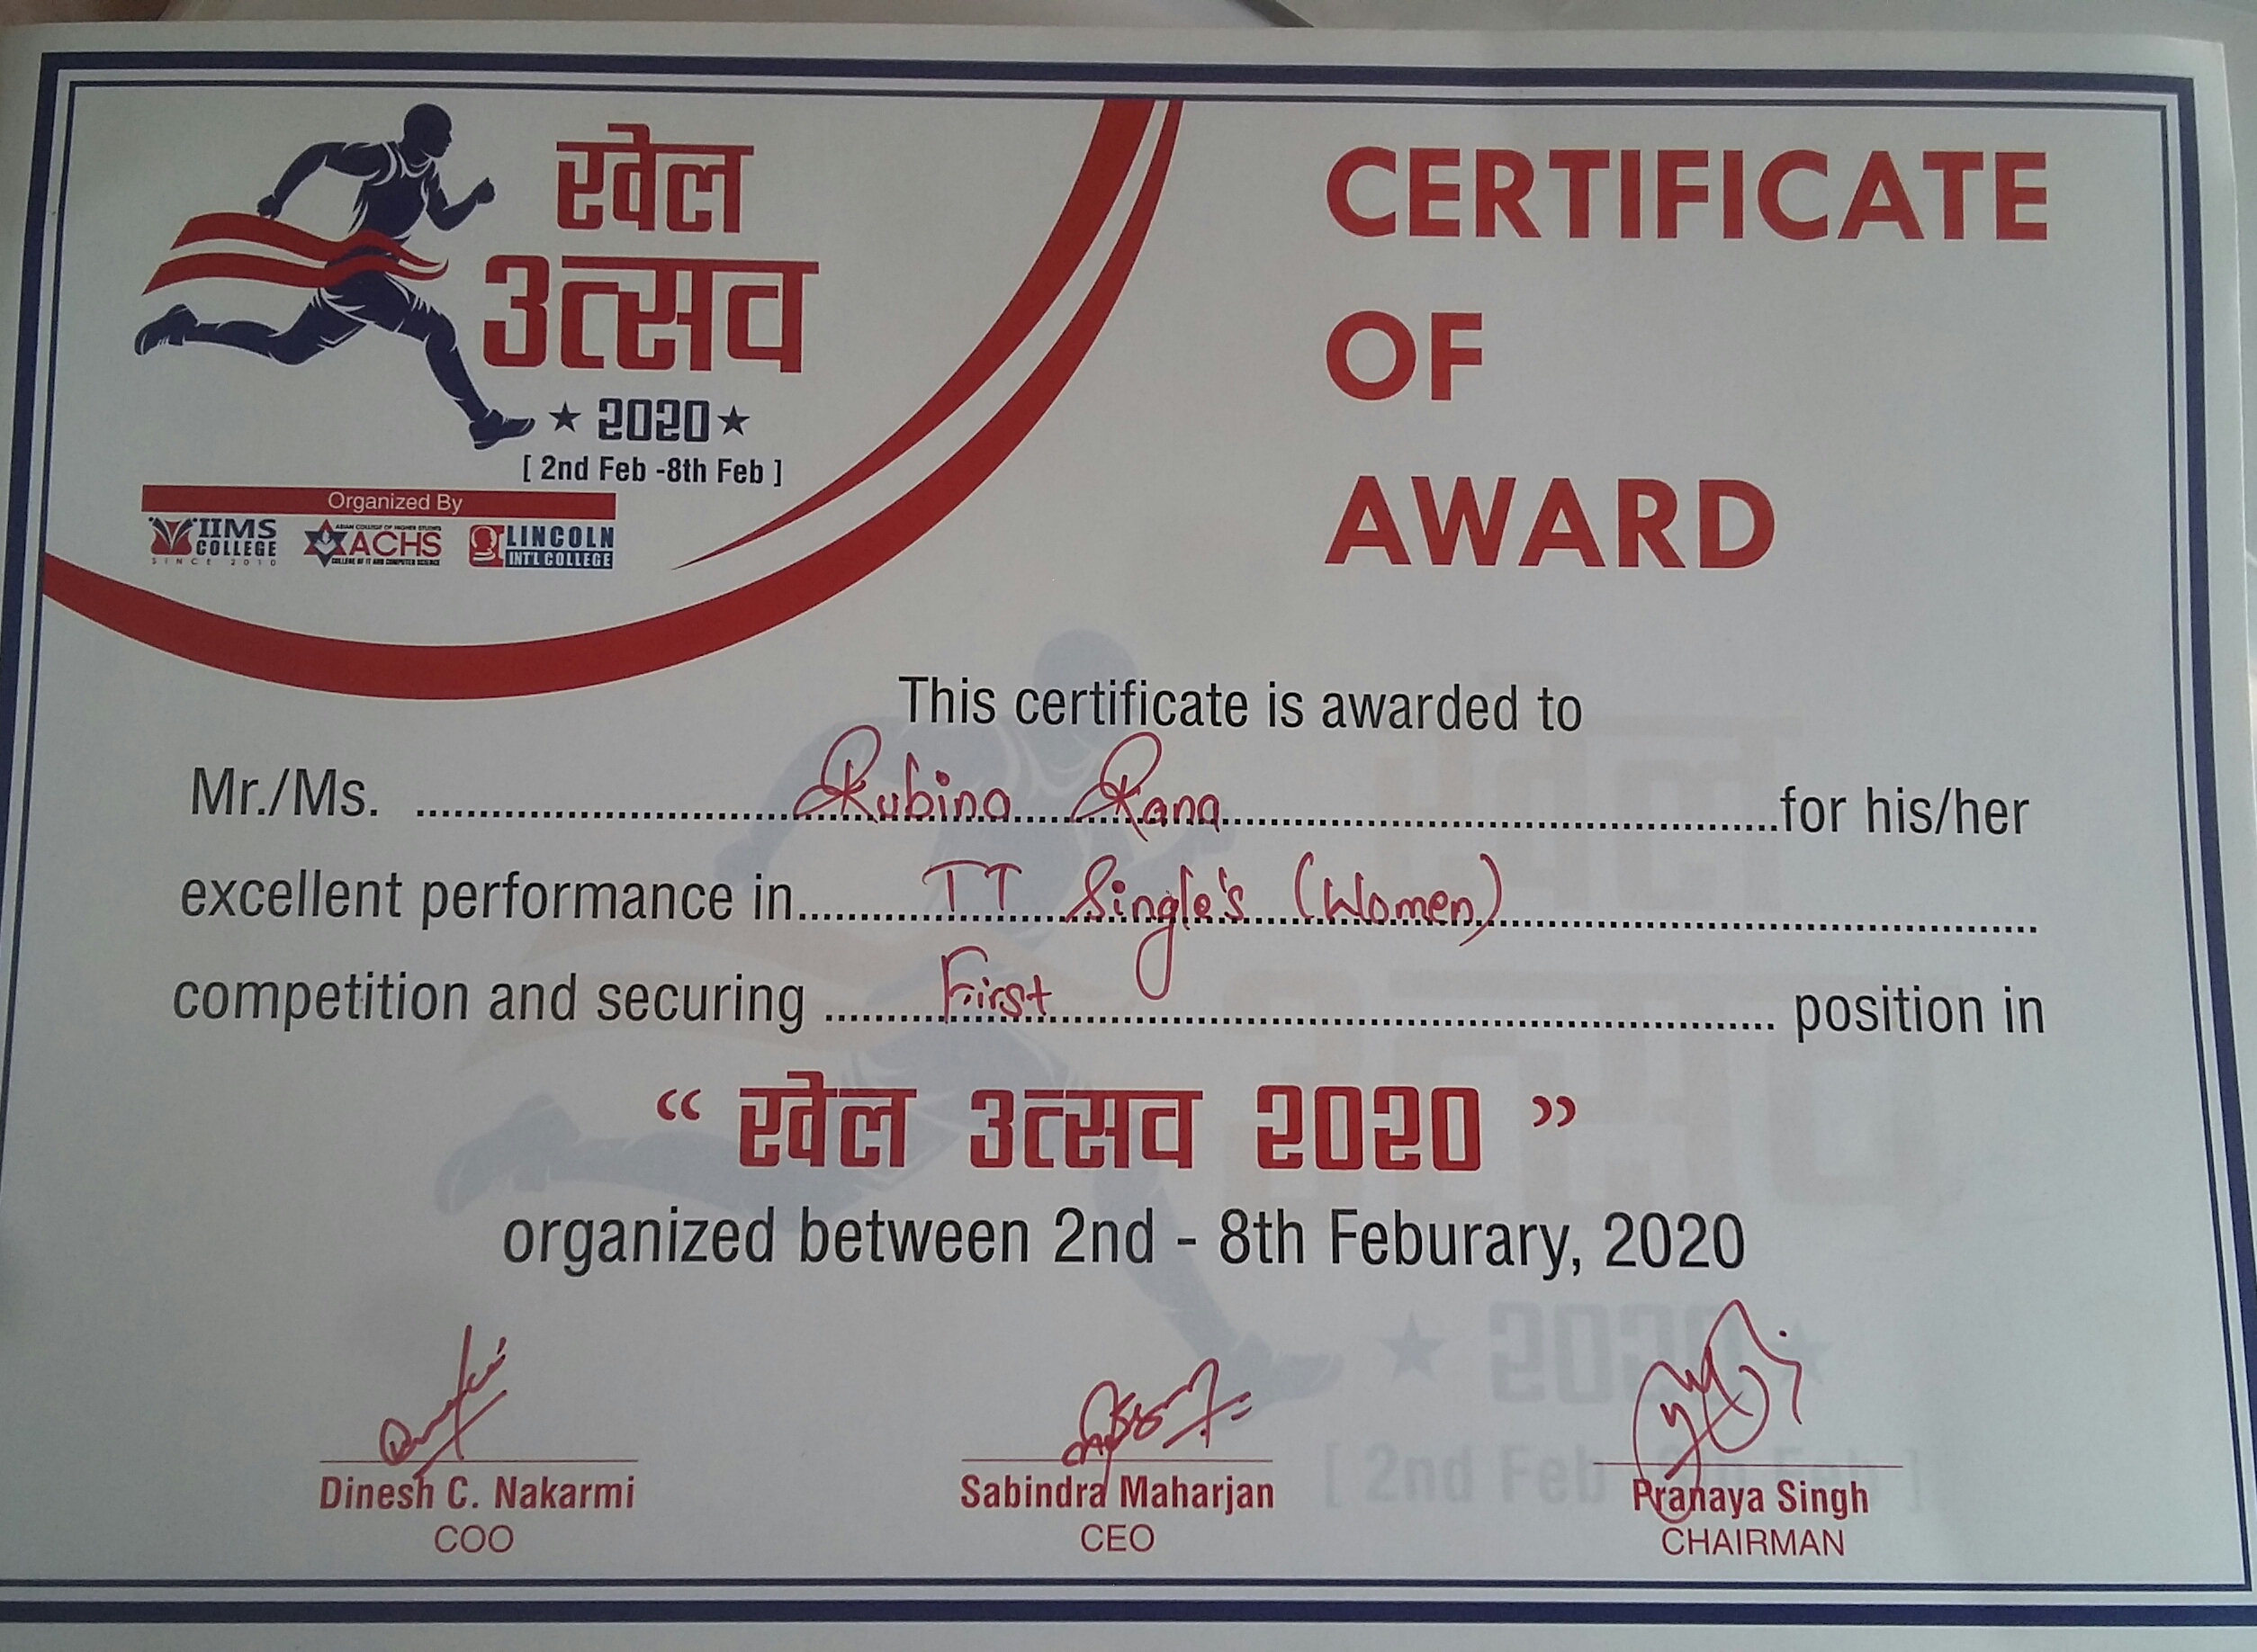 खेल
उत्सव
★ 2020 ★
[ 2nd Feb -8th Feb ]
Organized By
IIMS COLLEGE
SINCE 2010
ASIAN COLLEGE OF HIGHER STUDIES
ACHS
COLLEGE OF IT AND COMPUTER SCIENCE
LINCOLN
INT'L COLLEGE
CERTIFICATE
OF
AWARD
This certificate is awarded to
Mr./Ms. Rubina Rana for his/her
excellent performance in TT Single's (Women)
competition and securing First position in
“ खेल उत्सव 2020 ”
organized between 2nd - 8th Feburary, 2020
Dinesh C. Nakarmi
COO
Sabindra Maharjan
CEO
Pranaya Singh
CHAIRMAN